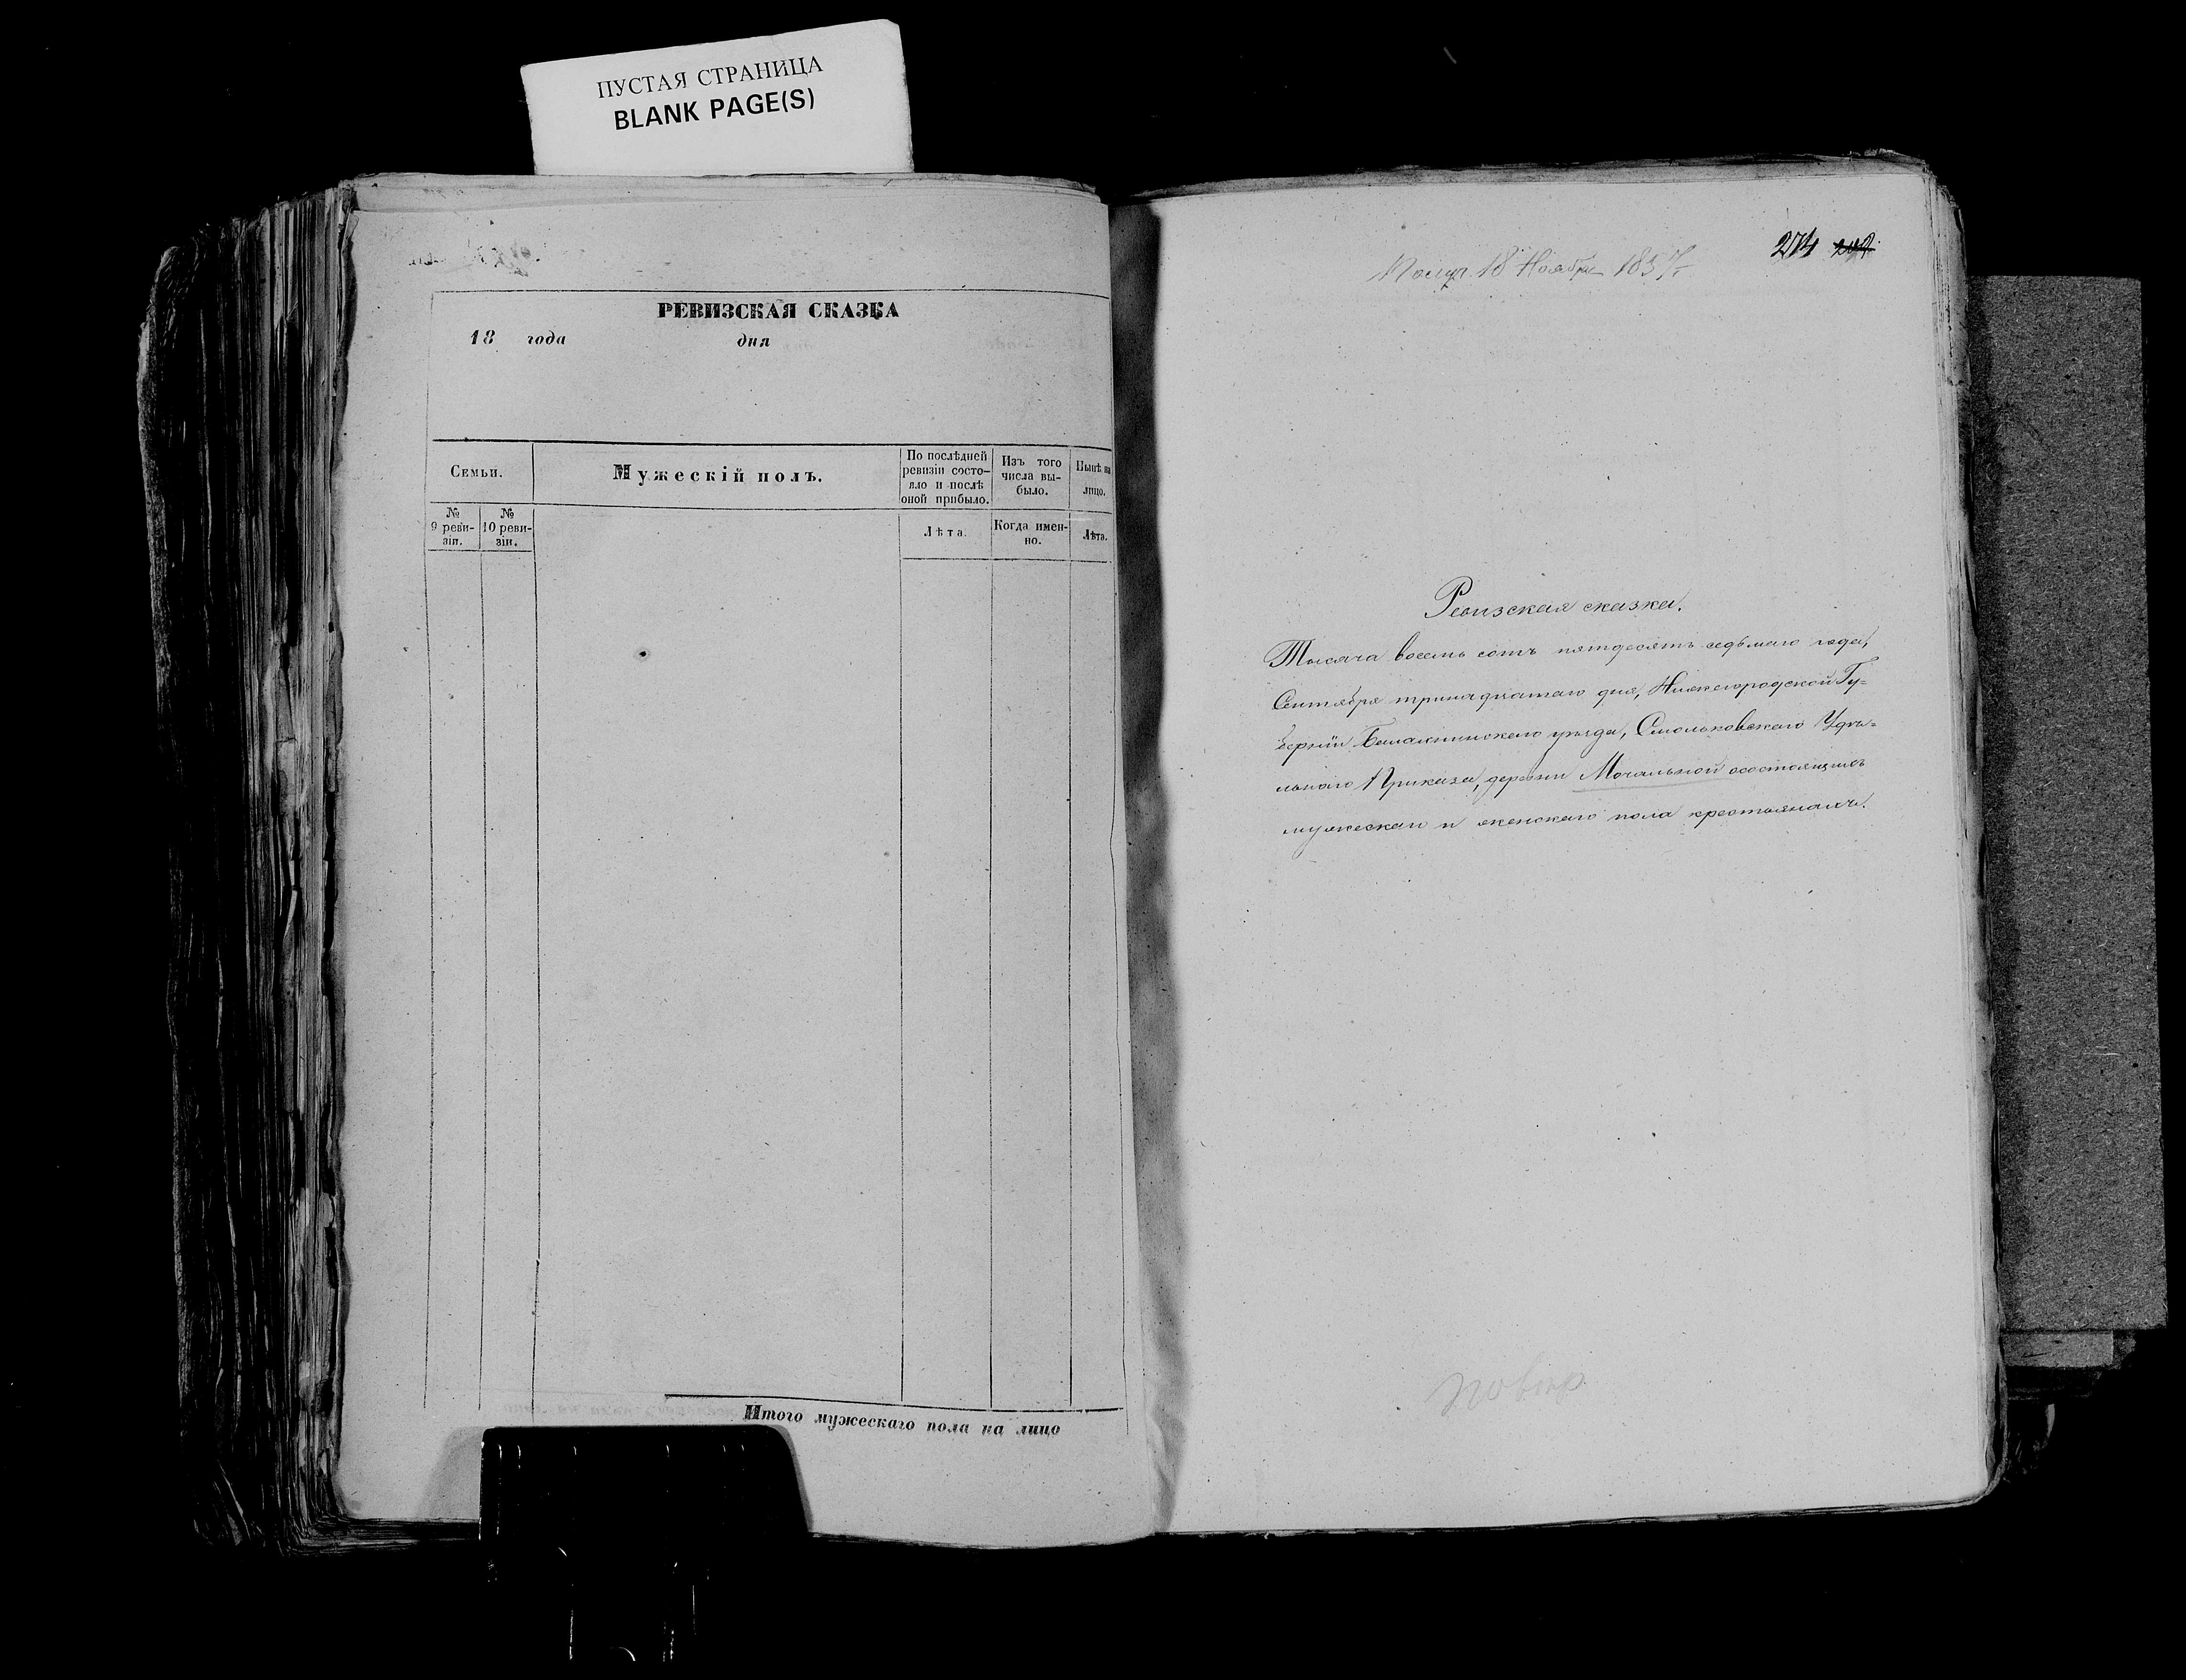 ПУСТАЯ СТРАНИЦА
BLANK PAGE(S)
РЕВИЗСКАЯ СКАЗКА
18 года дня
Семьи.
Мужескій полъ.
По послѣдней
ревизіи состо-
яло и послѣ
оной прибыло.
Изъ того
числа вы-
было.
Нынѣ на
лицо.
№
9 реви-
зіи.
№
10 реви-
зіи.
Лѣта.
Когда имен-
но.
Лѣта.
Итого мужескаго пола на лицо
18 Ноября 1857
274
Ревизская сказка.
Тысяча восемь сотъ пятдесятъ седьмаго года,
Сентября тринадцатаго дня, Нижегородской Гу=
берніи Балахнинскаго уѣзда, Смольковскаго Удѣ=
льнаго Приказа, деревни Мочальной о состоящихъ
мужескаго и женскаго пола крестьянахъ.